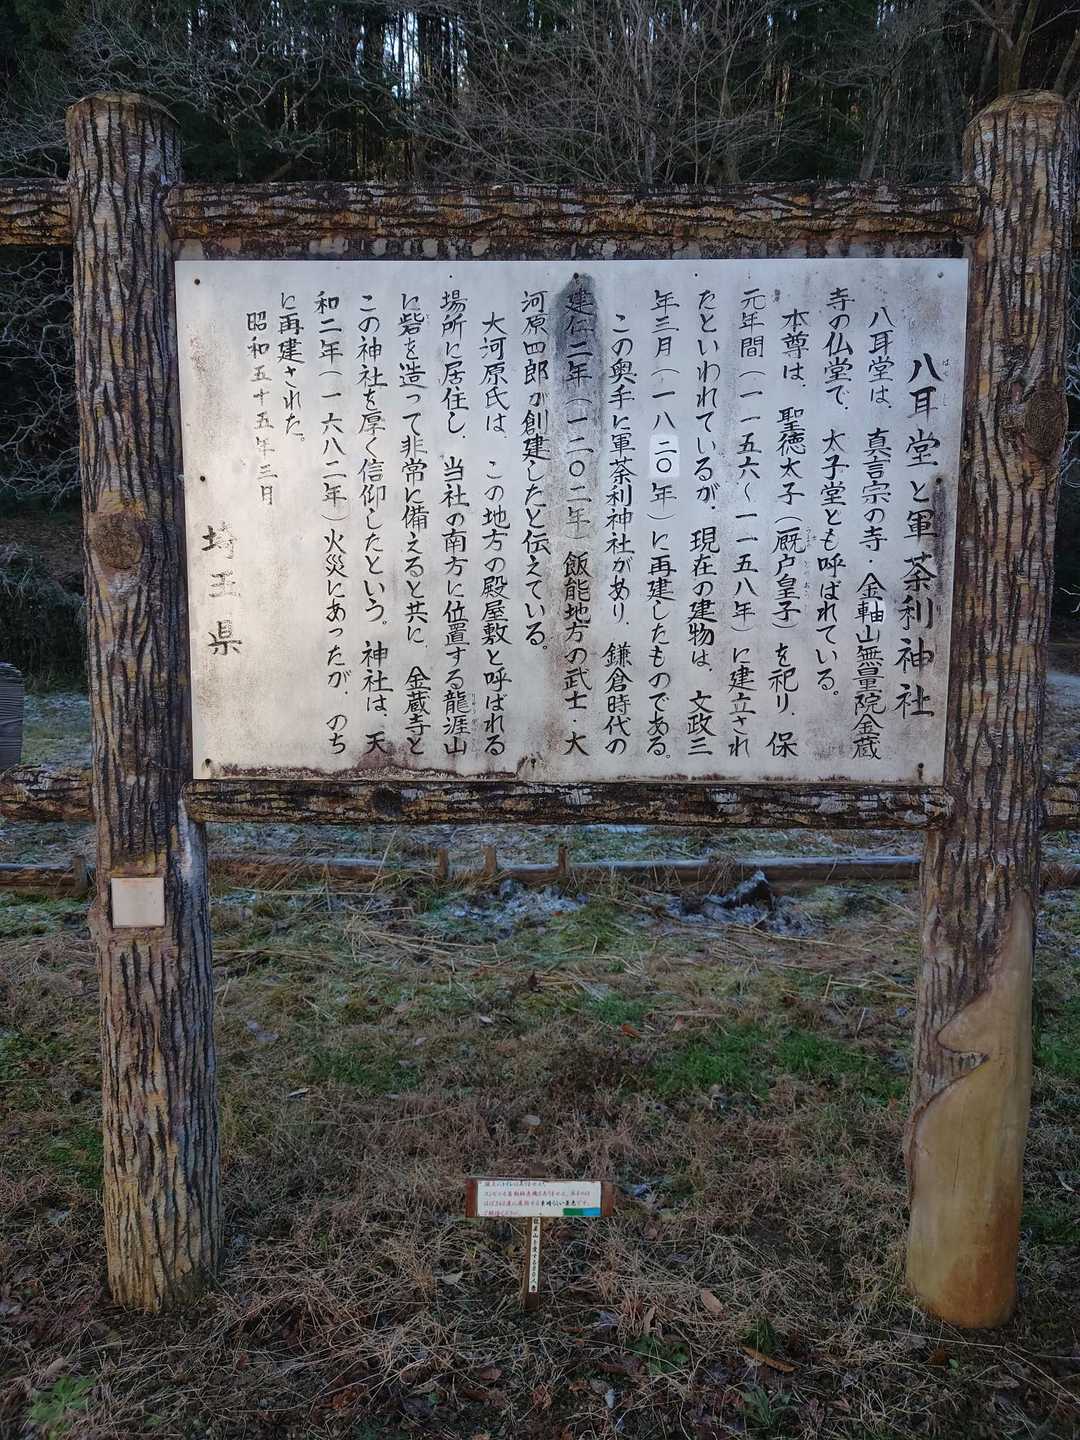 八耳堂と軍荼利神社
はじ
八耳堂は、真言宗の寺・金軸山無量院金蔵
寺の仏堂で、太子堂とも呼ばれている。
本尊は、聖徳太子(厩戸皇子)を祀り、保
元年間(一一五六～一一五八年)に建立され
たといわれているが、現在の建物は、文政三
年三月(一八二〇年)に再建したものである。
この奥手に軍荼利神社があり、鎌倉時代の
建仁二年(一二〇二年)飯能地方の武士・大
河原四郎が創建したと伝えている。
大河原氏は、この地方の殿屋敷と呼ばれる
場所に居住し、当社の南方に位置する龍涯山
に砦を造って非常に備えると共に、金蔵寺と
この神社を厚く信仰したという。神社は、天
和二年(一六八二年)火災にあったが、のち
に再建された。
昭和五十五年三月
埼玉県